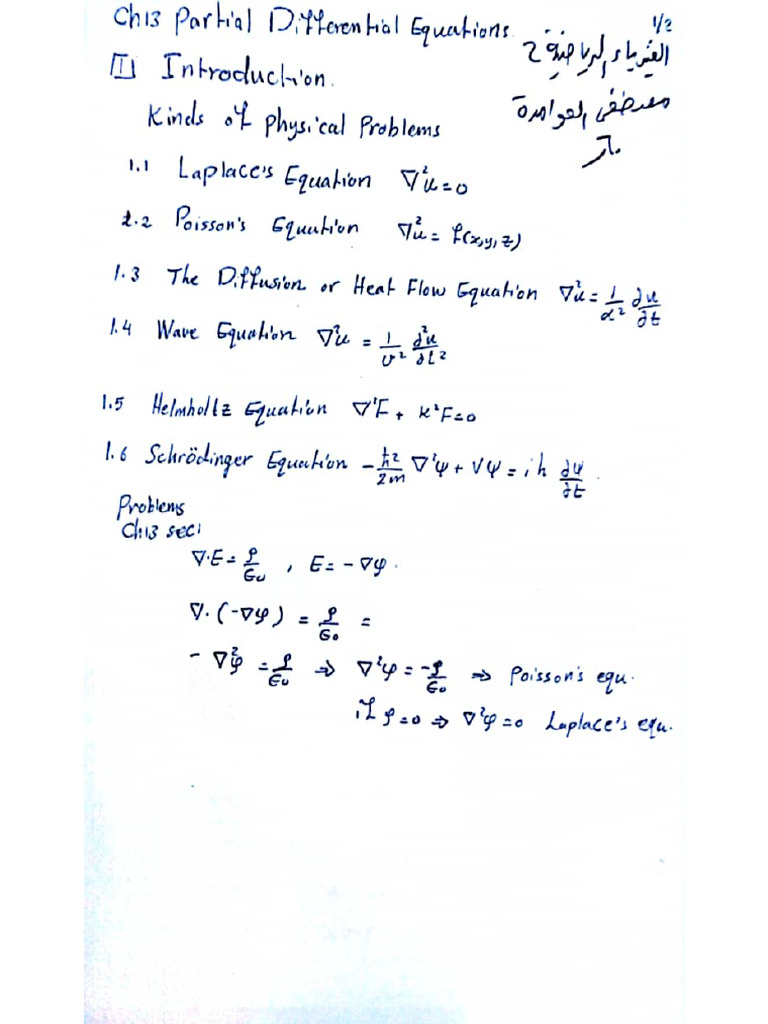 Ch13 Partial Differential Equations.
1/2
الفيزياء الرياضية 2
1 Introduction.
مصطفى العوامدة
Kinds of Physical Problems
1.1 Laplace's Equation ∇²u=0
1.2 Poisson's Equation ∇²u = f(x,y,z)
1.3 The Diffusion or Heat Flow Equation ∇²u = 1/α² ∂u/∂t
1.4 Wave Equation ∇²u = 1/v² ∂²u/∂t²
1.5 Helmholtz Equation ∇²F + K²F=0
1.6 Schrödinger Equation -ħ²/2m ∇²ψ + Vψ = iħ ∂ψ/∂t
Problems
Ch13 sec1
∇·E = ρ/ϵ₀ , E = -∇φ.
∇·(-∇φ) = ρ/ϵ₀ =
- ∇²φ = ρ/ϵ₀ ⇒ ∇²φ = -ρ/ϵ₀ ⇒ Poisson's equ.
if ρ=0 ⇒ ∇²φ=0 Laplace's equ.